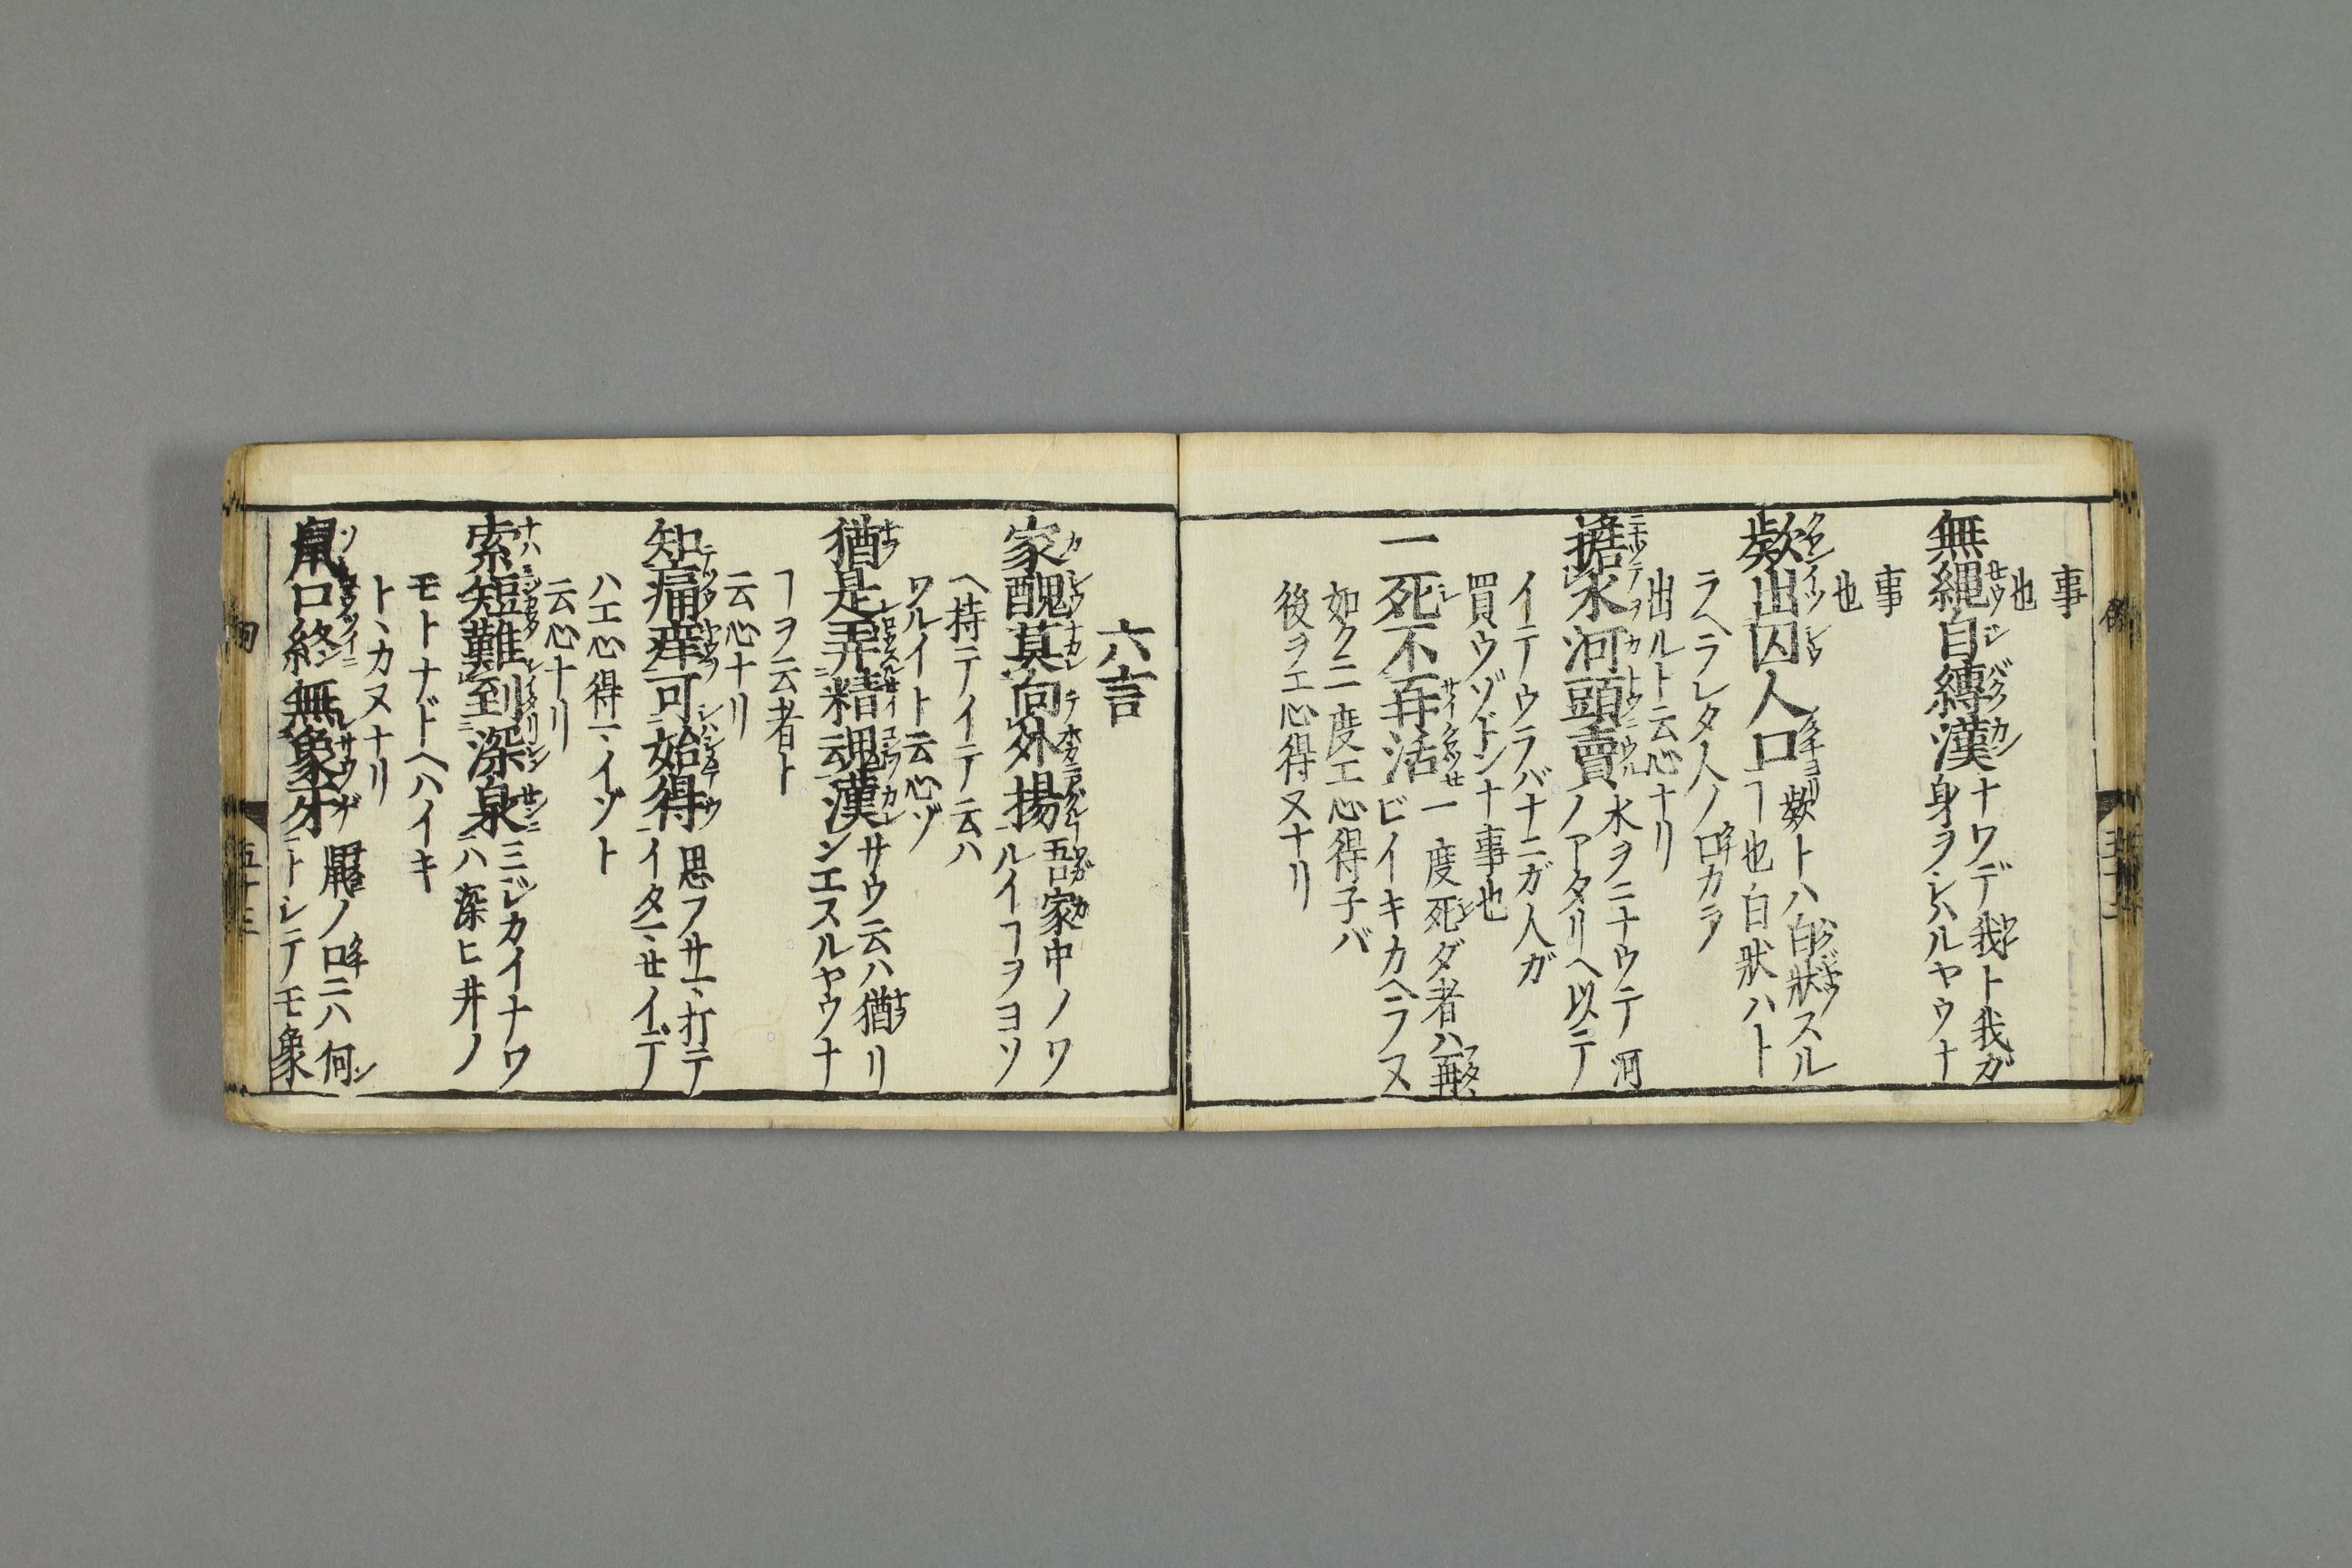 事
也
無縄自縛漢ナワデ我ト我ガ
身ヲシハルヤウナ
事
也
欵出囚人口欵トハ白狀スル
ヿ也白狀ハト
ラヘラレタ人ノ口カラ
出ルト云心ナリ
擔水河頭賣水ヲニナウテ河
ノアタリヘ以テ
イテウラバナニガ人ガ
買ウゾドンナ事也
一死不再活一度死ダ者ハ再
ビイキカヘラヌ
如ク二度工心得子バ
後ヲエ心得ヌナリ
六言
家醜莫向外揚吾家中ノワ
ルイヿヲヨソ
ヘ持テイテ云ハ
ワルイト云心ゾ
猶是弄精魂漢サウ云ハ猶リ
ンエスルヤウナ
ヿヲ云者ト
云心ナリ
知痛痒可始得思フサマ打テ
イタマせイデ
ハエ心得マイゾト
云心ナリ
索短難到深泉ミジカイナワ
ハ深ヒ井ノ
モトナドヘハイキ
トヾカヌナリ
鼠口終無象牙鼠ノ口ニハ何
トシテモ象
五十三